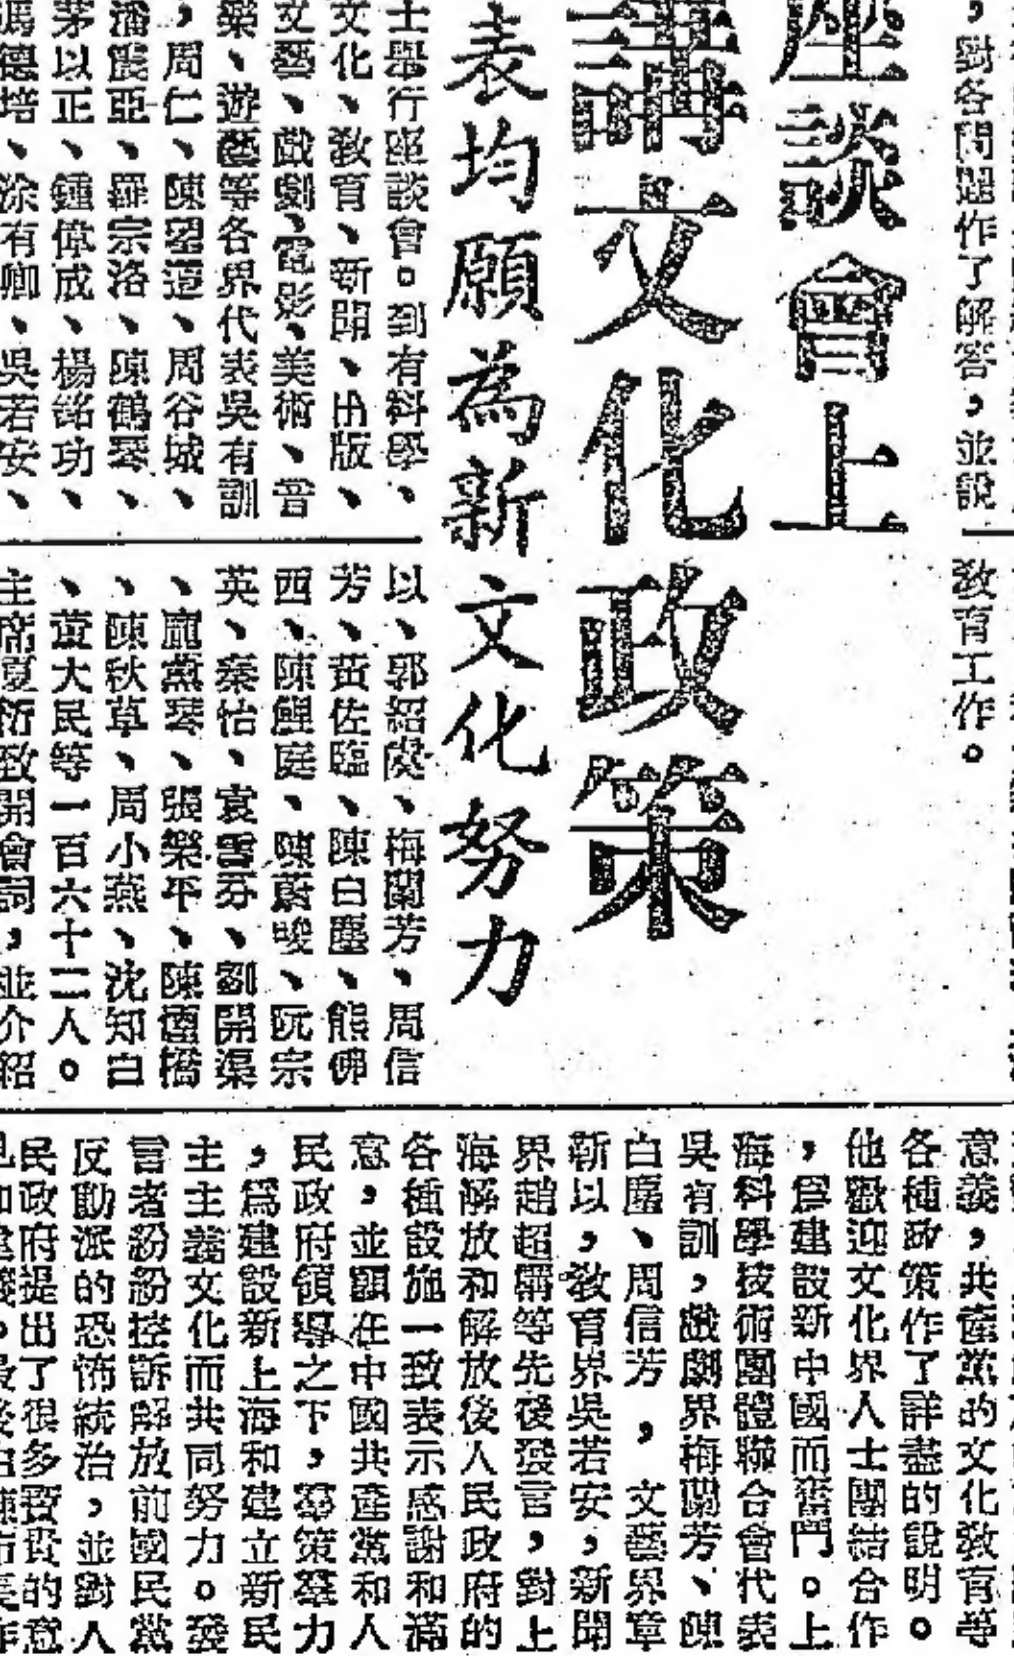 ，對各問題作了解答，並說
教育工作。
座談會上
講文化政策
表均願為新文化努力
士舉行座談會。到有科學、
文化、教育、新聞、出版、
文藝、戲劇、電影、美術、音
樂、遊藝等各界代表吳有訓
、周仁、陳望道、周谷城、
潘震亞、羅宗洛、陳鶴琴、
茅以正、鍾偉成、楊銘功、
馮德培、涂有卿、吳若安、
以、郭紹虞、梅蘭芳、周信
芳、黃佐臨、陳白塵、熊佛
西、陳鯉庭、陳蔚峻、阮宗
英、秦怡、袁雪芬、劉開渠
、龐薰琴、張樂平、陳煙橋
、陳秋草、周小燕、沈知白
、黃大民等一百六十二人。
主席夏衍致開會詞，並介紹
意義，共產黨的文化教育等
各種政策作了詳盡的說明。
他歡迎文化界人士團結合作
，爲建設新中國而奮鬥。上
海科學技術團體聯合會代表
吳有訓，戲劇界梅蘭芳、陳
白塵、周信芳，文藝界章
靳以，教育界吳若安；新聞
界趙超構等先後發言，對上
海解放和解放後人民政府的
各種設施一致表示感謝和滿
意，並願在中國共產黨和人
民政府領導之下，羣策羣力
，爲建設新上海和建立新民
主主義文化而共同努力。發
言者紛紛控訴解放前國民黨
反動派的恐怖統治，並對人
民政府提出了很多寶貴的意